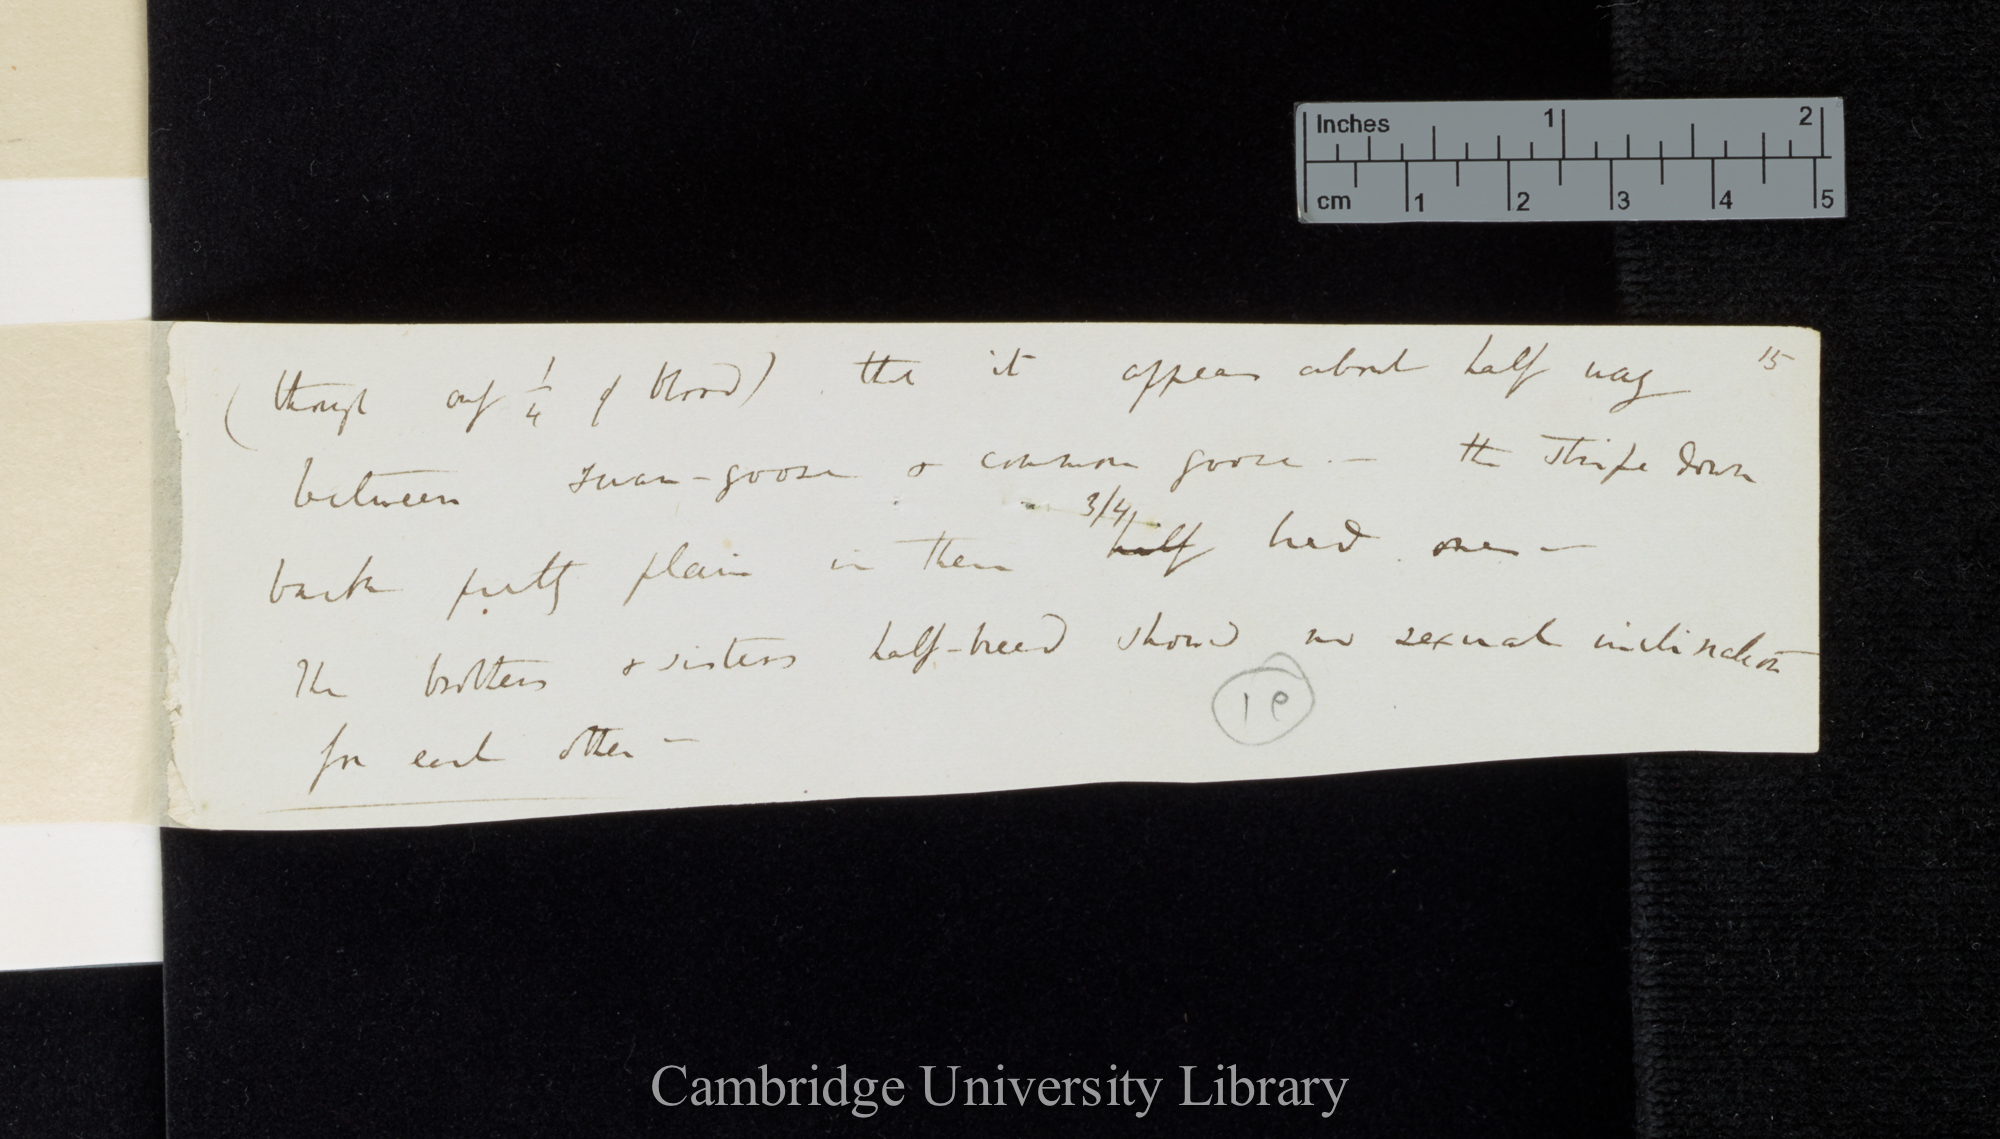 Inches 1 2
cm 1 2 3 4 5
15
(though only 1/4 of blood) that it appears about half way
between swan-goose & common goose. — the stripe down
back pretty plain in these 3/4 half bred ones —
The brothers & sisters half-breed showed no sexual inclination
for each other —
19
Cambridge University Library